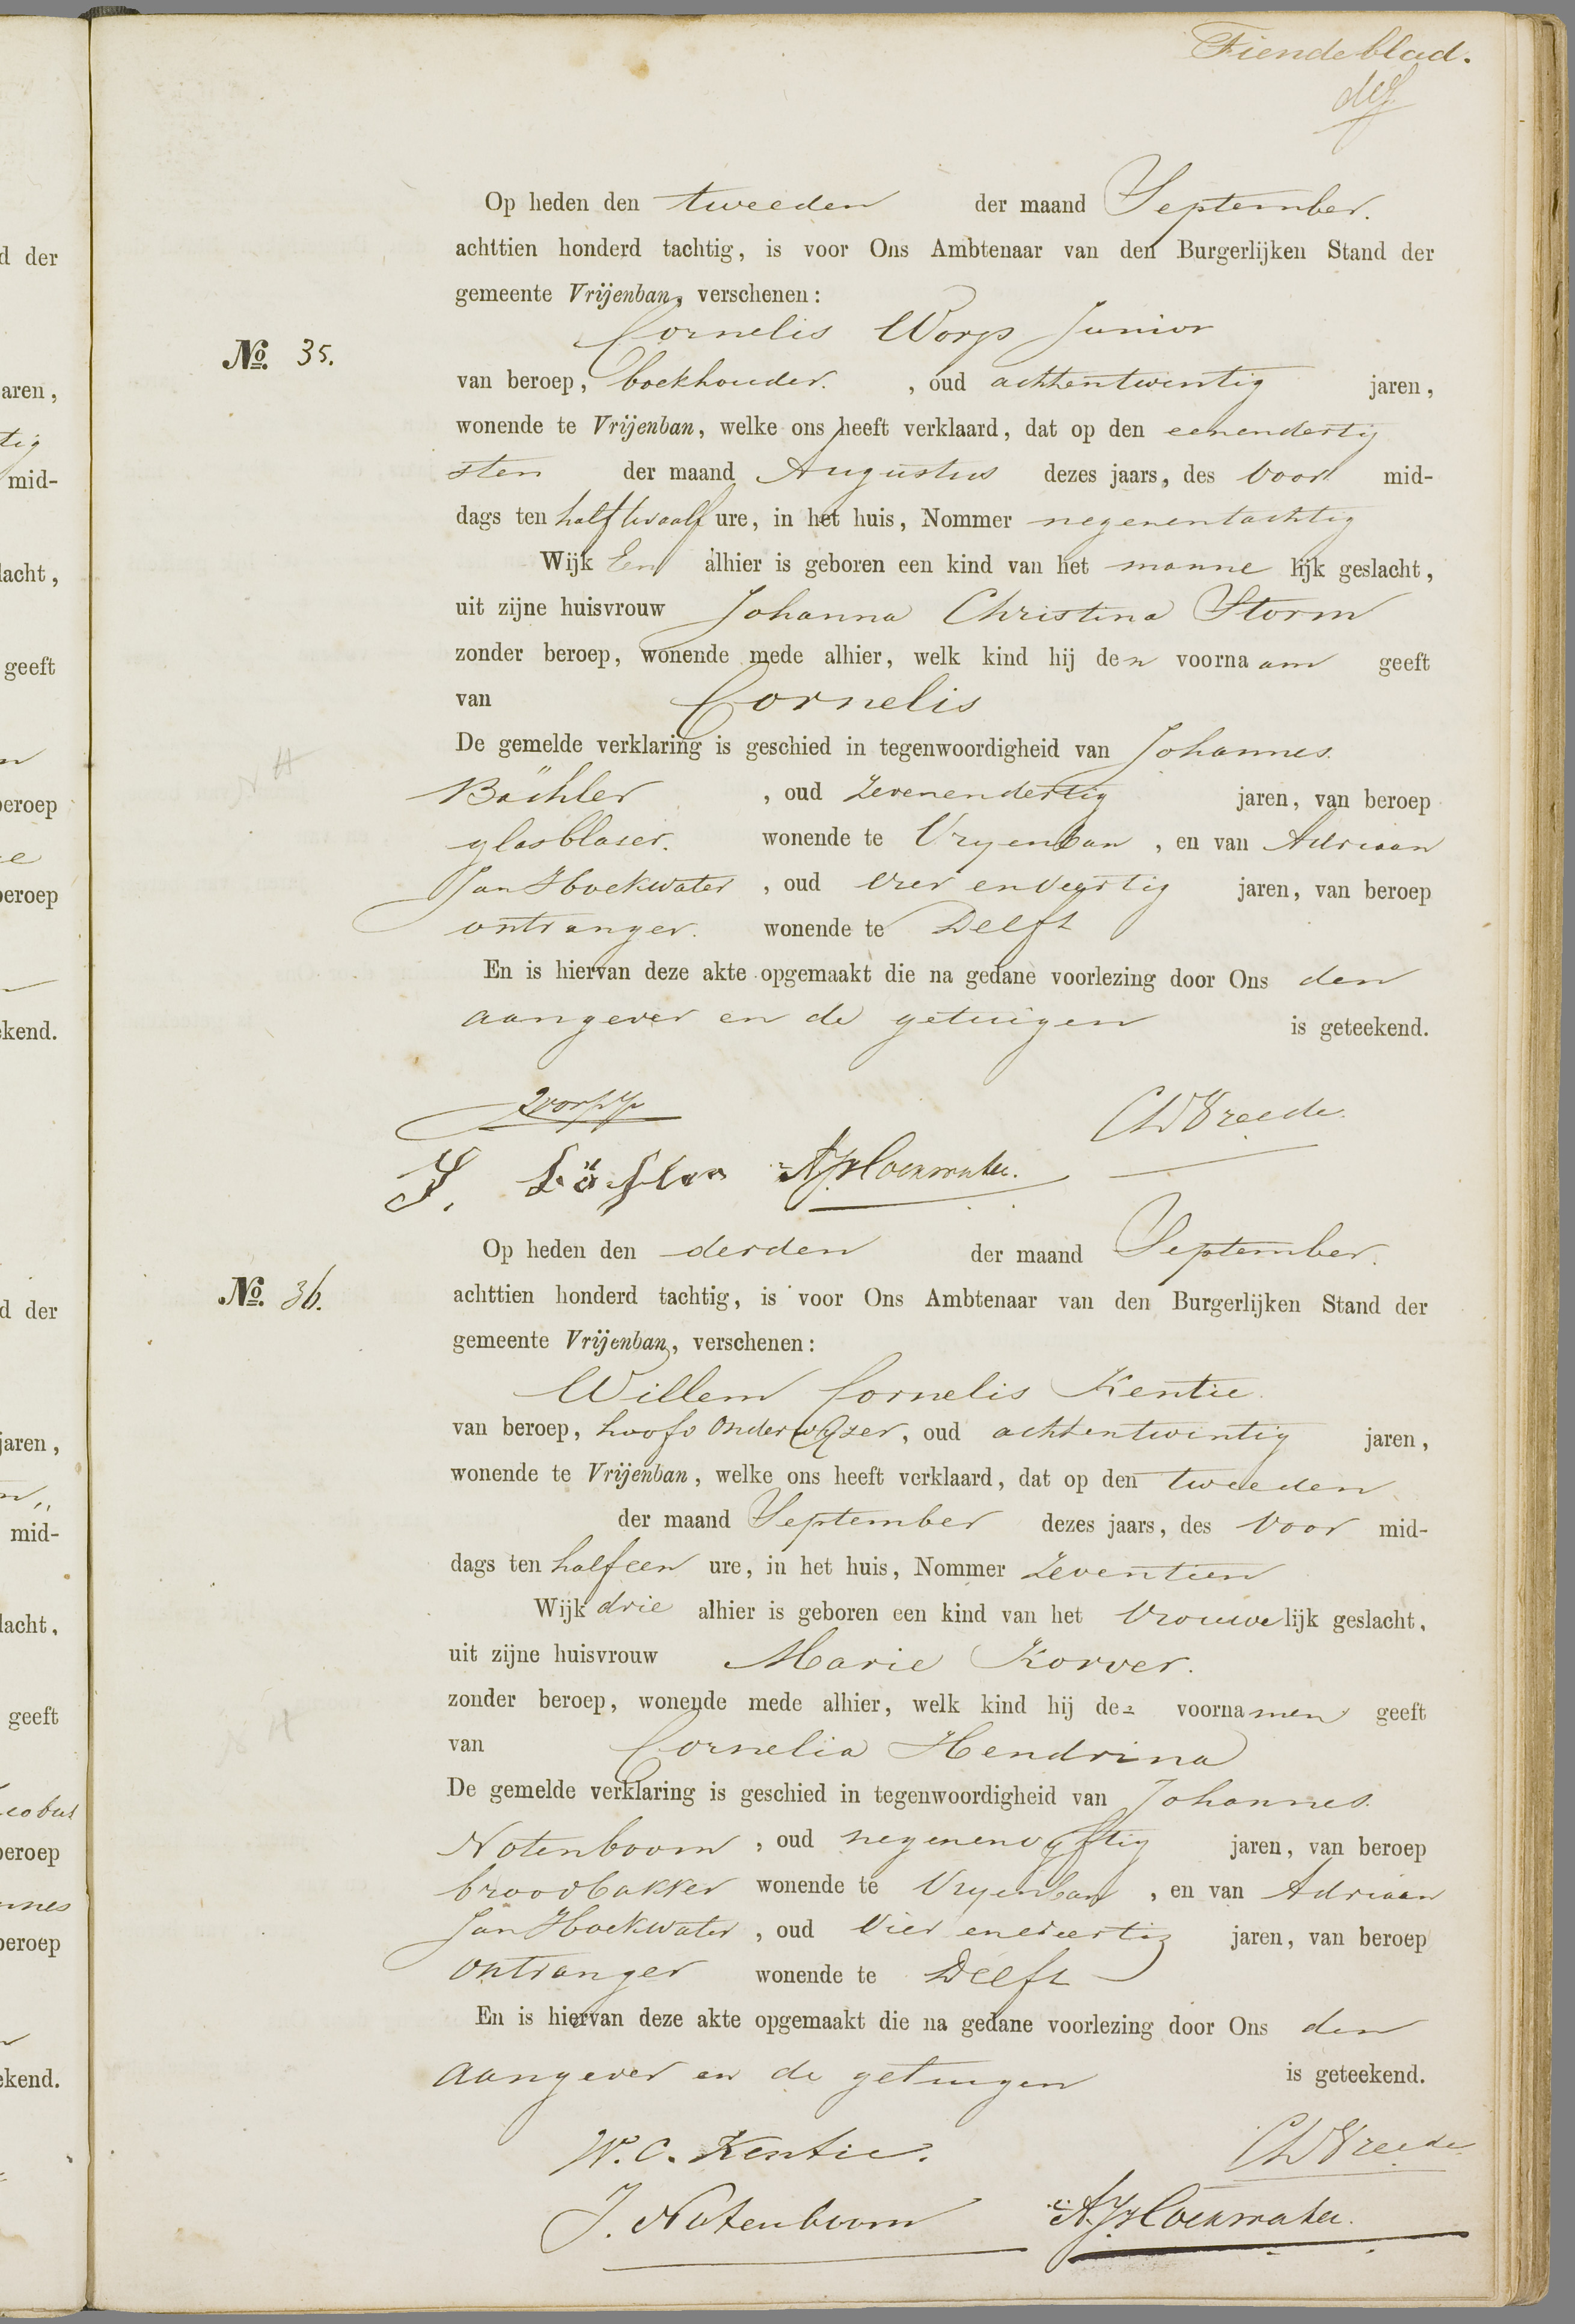 Tiende blad.
Op heden den tweeden der maand September.
achttien honderd tachtig, is voor Ons Ambtenaar van den Burgerlijken Stand der
gemeente Vrijenban, verschenen:
Cornelis Worp Junior
No. 35.
van beroep, boekhouder. , oud achtentwintig jaren,
wonende te Vrijenban, welke ons heeft verklaard, dat op den eenendertig
sten der maand Augustus dezes jaars, des voor mid-
dags ten half twaalf ure, in het huis, Nommer negenentachtig
Wijk Een alhier is geboren een kind van het manne lijk geslacht,
uit zijne huisvrouw Johanna Christina Storm
zonder beroep, wonende mede alhier, welk kind hij den voornaam geeft
van Cornelis
De gemelde verklaring is geschied in tegenwoordigheid van Johannes
Bächler , oud zevenendertig jaren, van beroep
glasblazer. wonende te Vryenban , en van Adriaan
Jan Hoekwater , oud vier en veertig jaren, van beroep
ontvanger. wonende te Delft
En is hiervan deze akte opgemaakt die na gedane voorlezing door Ons den
aangever en de getuigen is geteekend.
CW Vreede.
J. Bächler A.J. Hoekwater.
Op heden den derden der maand September.
No. 36.
achttien honderd tachtig, is voor Ons Ambtenaar van den Burgerlijken Stand der
gemeente Vrijenban, verschenen:
Willem Cornelis Kentie
van beroep, hoofd Onderwyzer, oud achtentwintig jaren,
wonende te Vrijenban, welke ons heeft verklaard, dat op den tweeden
der maand September dezes jaars, des voor mid-
dags ten half een ure, in het huis, Nommer zeventien
Wijk drie alhier is geboren een kind van het vrouwelijk geslacht,
uit zijne huisvrouw Marie Korver.
zonder beroep, wonende mede alhier, welk kind hij de voornamen geeft
van Cornelia Hendrina
De gemelde verklaring is geschied in tegenwoordigheid van Johannes
Notenboom , oud negenenvyftig jaren, van beroep
broodbakker wonende te Vryenban , en van Adriaan
Jan Hoekwater , oud vier enveertig jaren, van beroep
ontvanger wonende te Delft
En is hiervan deze akte opgemaakt die na gedane voorlezing door Ons den
aangever en de getuigen is geteekend.
W. C. Kentie. CW Vreede
J. Notenboom A.J. Hoekwater.